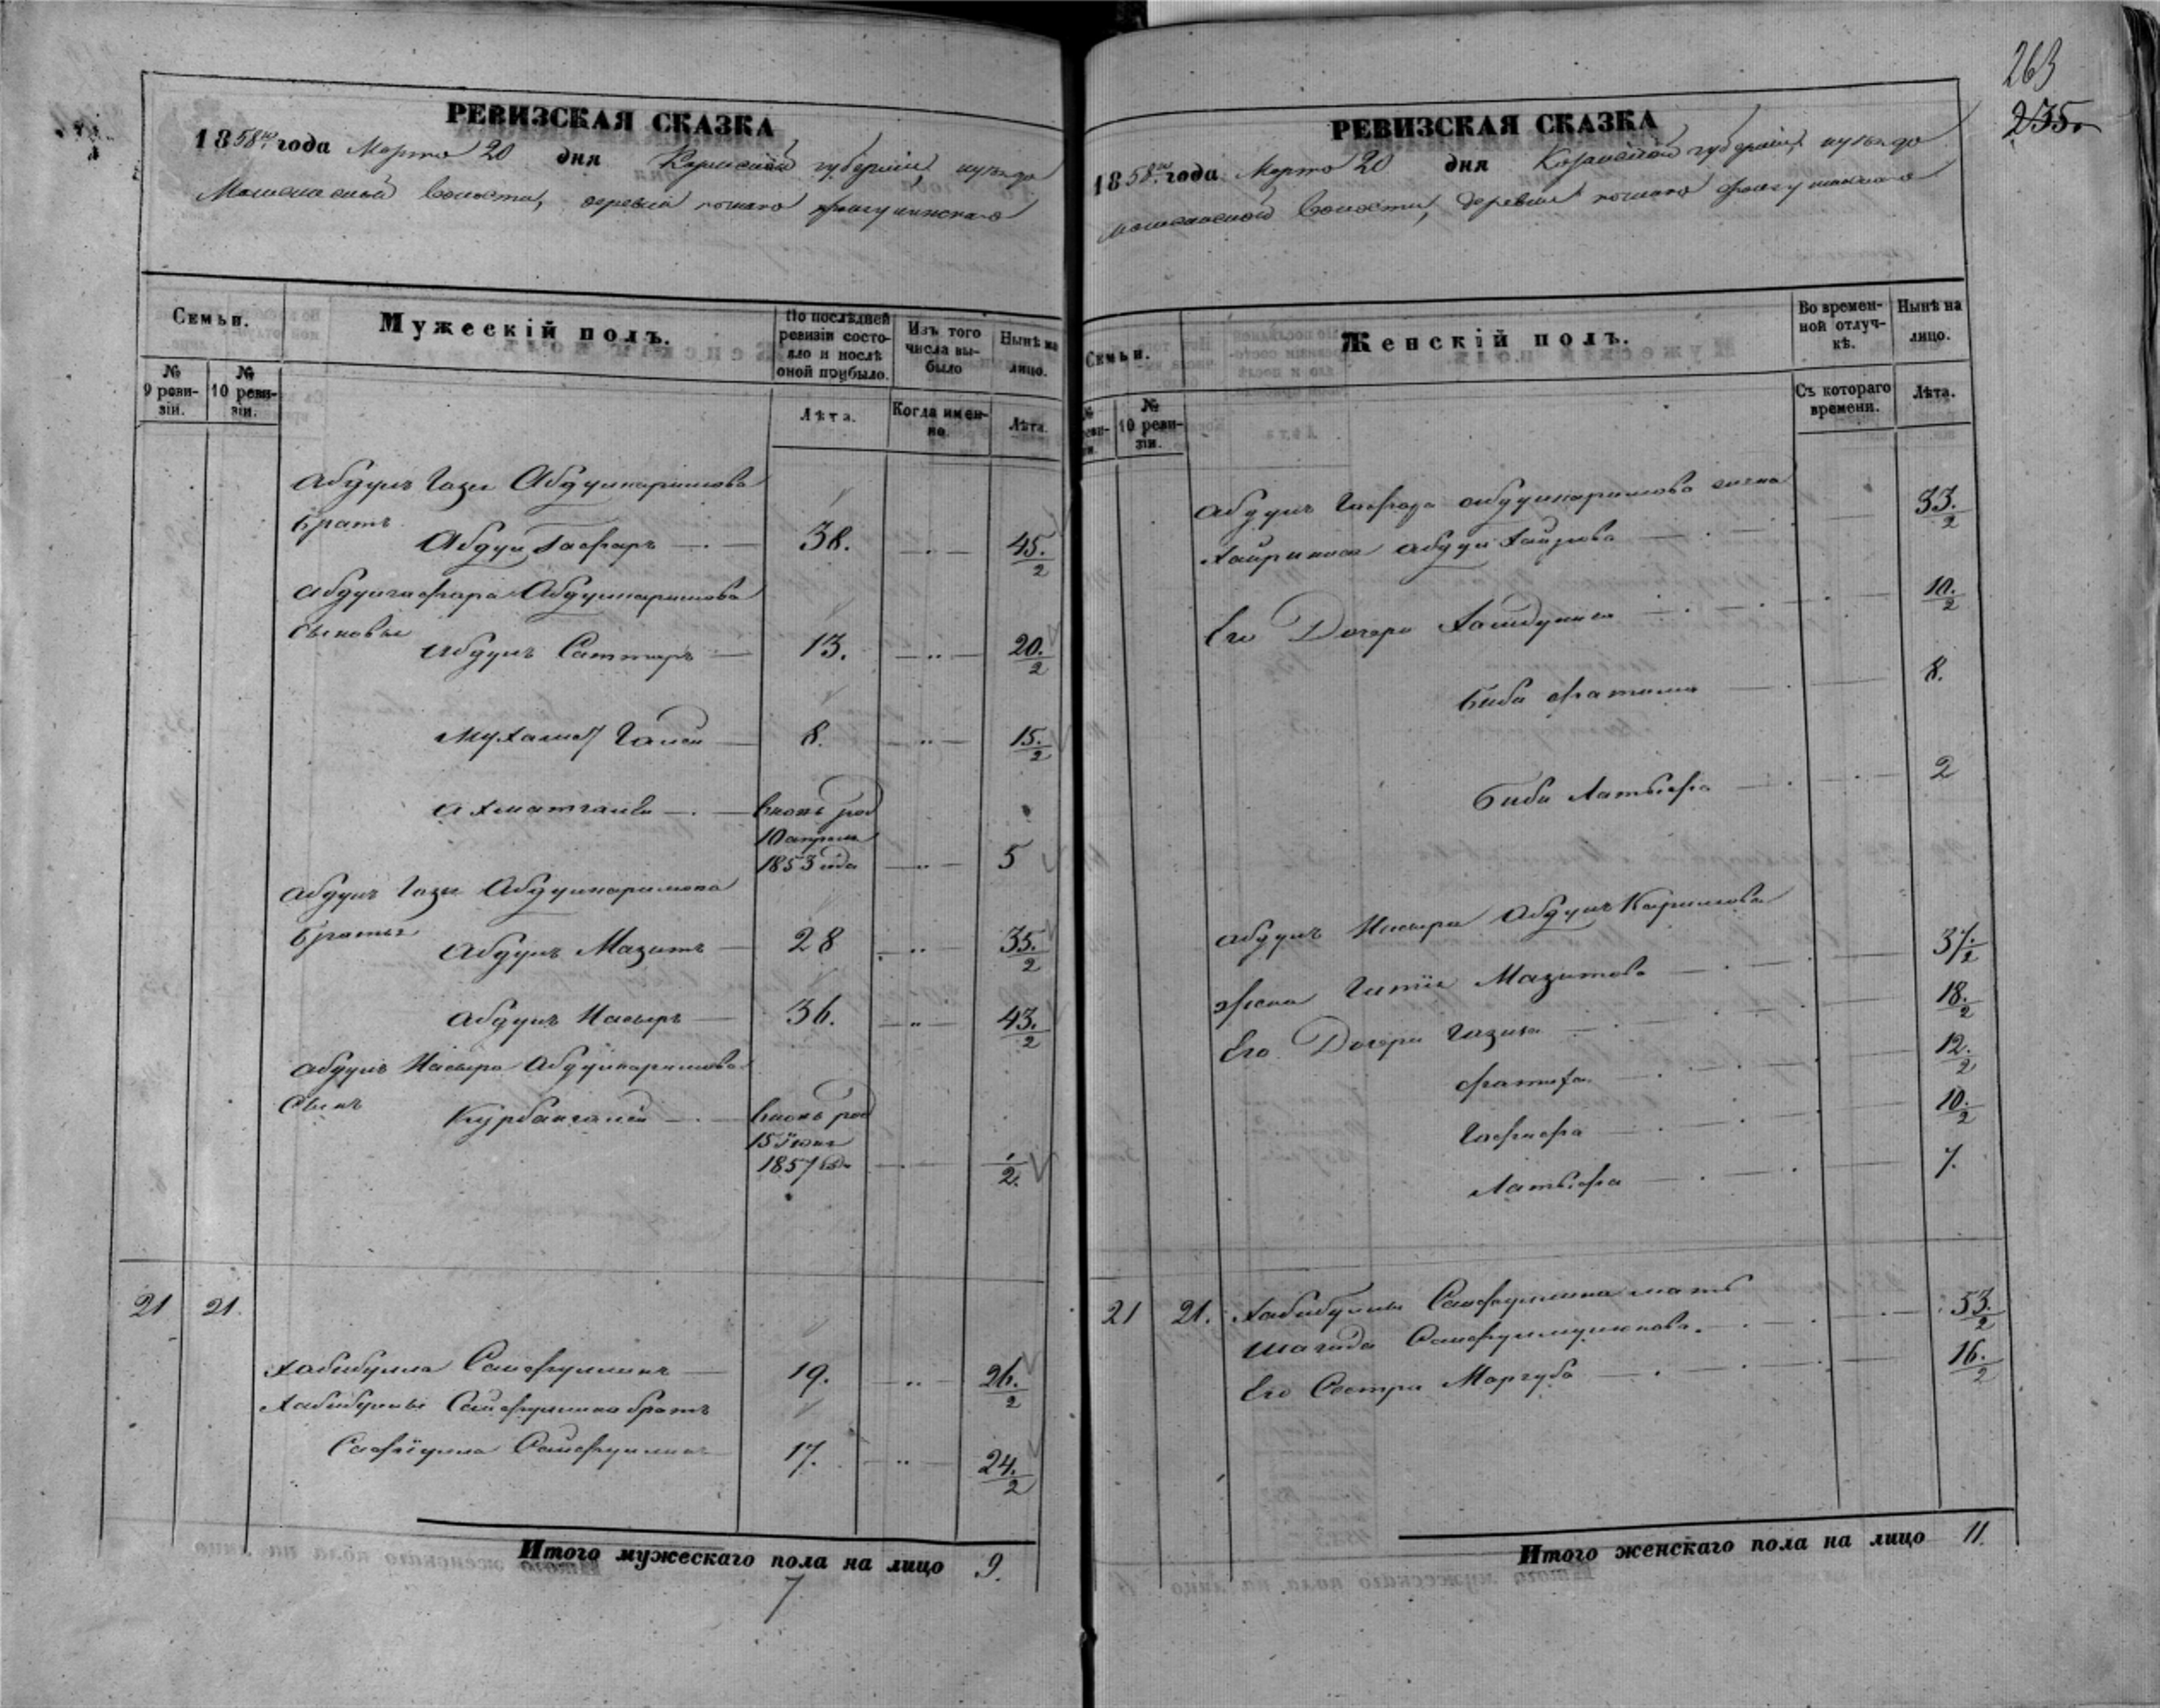 263
235.
РЕВИЗСКАЯ СКАЗКА
1858го года Марта 20 дня Казанской губернии, уезда
волости, деревни
Семьи.
Мужескій полъ.
По послѣдней ревизіи состояло и послѣ оной прибыло.
Изъ того числа выбыло
Нынѣ на лицо.
№ 9 ревизіи.
№ 10 ревизіи.
Лѣта.
Когда именно.
Лѣта.
Абдулъ Гази Абдулкаримова
братъ
Абдул Гафаръ — 38. — 45. 2
Абдулгафара Абдулкаримова
Сыновья
Абдулъ Саттаръ — 13. — " — 20. 2
Мухамет Галей — 8. " — 15. 2
Ахматгали — . — вновь род
10 апреля
1853 года — " — 5
Абдулъ Гази Абдулкаримова
братья
Абдулъ Мазитъ — 28 — " — 35. 2
Абдулъ Насыръ — 36. — " — 43. 2
Абдулъ Насыра Абдулкаримова
Сынъ
Курбангалей — . — вновь род
15 Іюня
1857 года — 1 2.
21 21.
Хабибулла Сайфуллинъ — 19. — " — 26. 2
Хабибуллы Сайфуллина братъ
Сафіулла Сайфуллинъ 17. — " — 24. 2
Итого мужескаго пола на лицо 9.
7
РЕВИЗСКАЯ СКАЗКА
1858го года Марта 20 дня Казанской губерніи, уезда
волости, деревни
Семьи.
Женскій полъ.
Во временной отлучкѣ.
Нынѣ на лицо.
№ 10 ревизіи.
Съ котораго времени.
Лѣта.
Абдулъ Гафара Абдулкаримова жена
Абдул — . — 33. 2
Его Дочери — 10. 2
Биби Фатима — 8.
Биби Латыфа — . — 2
Абдулъ Насыра Абдулъ Каримова
Жена Мазитова — . — 37. 2
Его Дочери Газиза — 18. 2
— . — 12. 2
Гафифа — . — 10. 2
Латыфа — . — 7.
21 21. Хабибуллы Сайфуллина мать
Шагида — . — 53. 2
Его Сестра Маргуба — . — 16. 2
Итого женскаго пола на лицо 11.